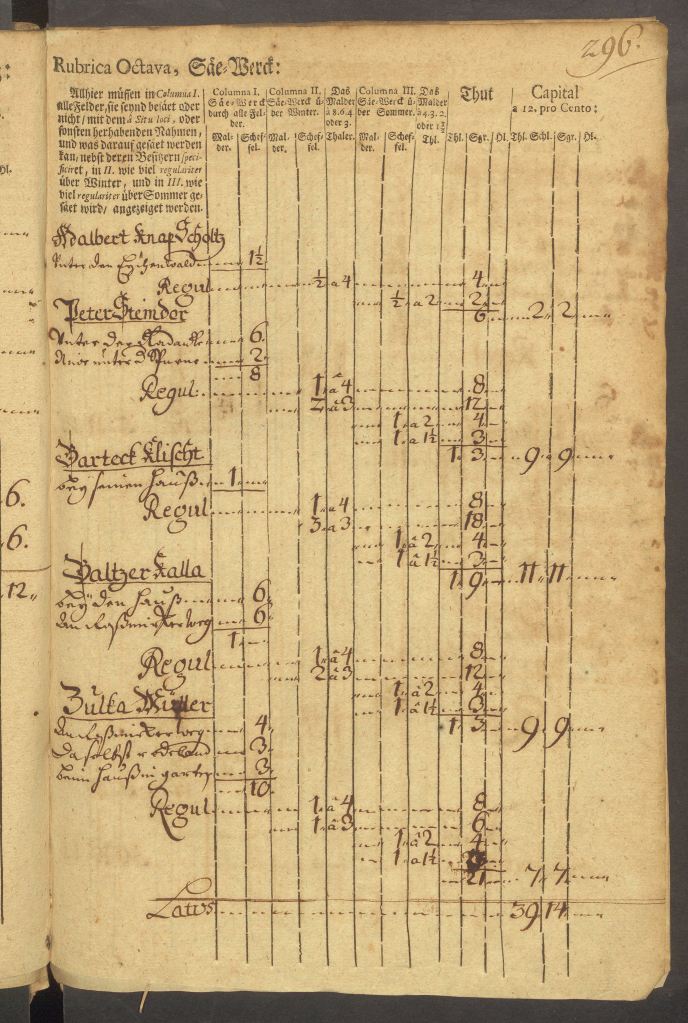 296.
Rubrica Octava, Säe-Werck:
Allhier müssen in Columna I.
alle Felder, sie seynd besäet oder
nicht/ mit dem à Situ loci, oder
sonsten herhabenden Nahmen,
und was darauf gesäet werden
kan/ nebst deren Besitzern speci-
ficiret, in II. wie viel regulariter
über Winter, und in III. wie
viel regulariter über Sommer ge-
säet wird/ angezeiget werden.
Columna I. Säe-Werck durch alle Fel-der. Mal-der. Schef-fel.
Columna II. Säe-Werck ü-ber Winter. Mal-der. Schef-fel.
Das Malder à 8. 6. 4. oder 3. Thaler.
Columna III. Säe-Werck ü-ber Sommer. Mal-der. Schef-fel.
Das Malder à 4. 3. 2. oder 1 1/2 Thl.
Thut Thl. Sgr. Hl.
Capital à 12. pro Cento: Thl. Schl. Sgr. Hl.
Adalbert Knap Scholtz
Unter den 1 1/2
Regul 1/2 a 4 4
1/2 a 2 2
6 2 2
Peter Stemdor
Unter der 6.
unter d 2
8
Regul. 1 â 4 8
2 â 3 12
1 a 2 4
1 a 1 1/2 3
1 3 9 9
Barteck Klischt
bey seinen Hauß 1
Regul 1 a 4 8
3 a 3 18
1 â 2 4
1 â 1 1/2 3
1 9 11 11
Baltzer Kalla
bey den Hauß 6
weg 6
1
Regul 1 â 4 8
2 â 3 12
1 â 2 4
1 â 1 1/2 3
1 3 9 9
weg 4
Daselbst 3
beim Hauß in garten 3
10
Regul 1 â 4 8
1 â 3 6
1 â 2 4
1 a 1 1/2
21 7 7
Latus 39 14
6.
6.
12